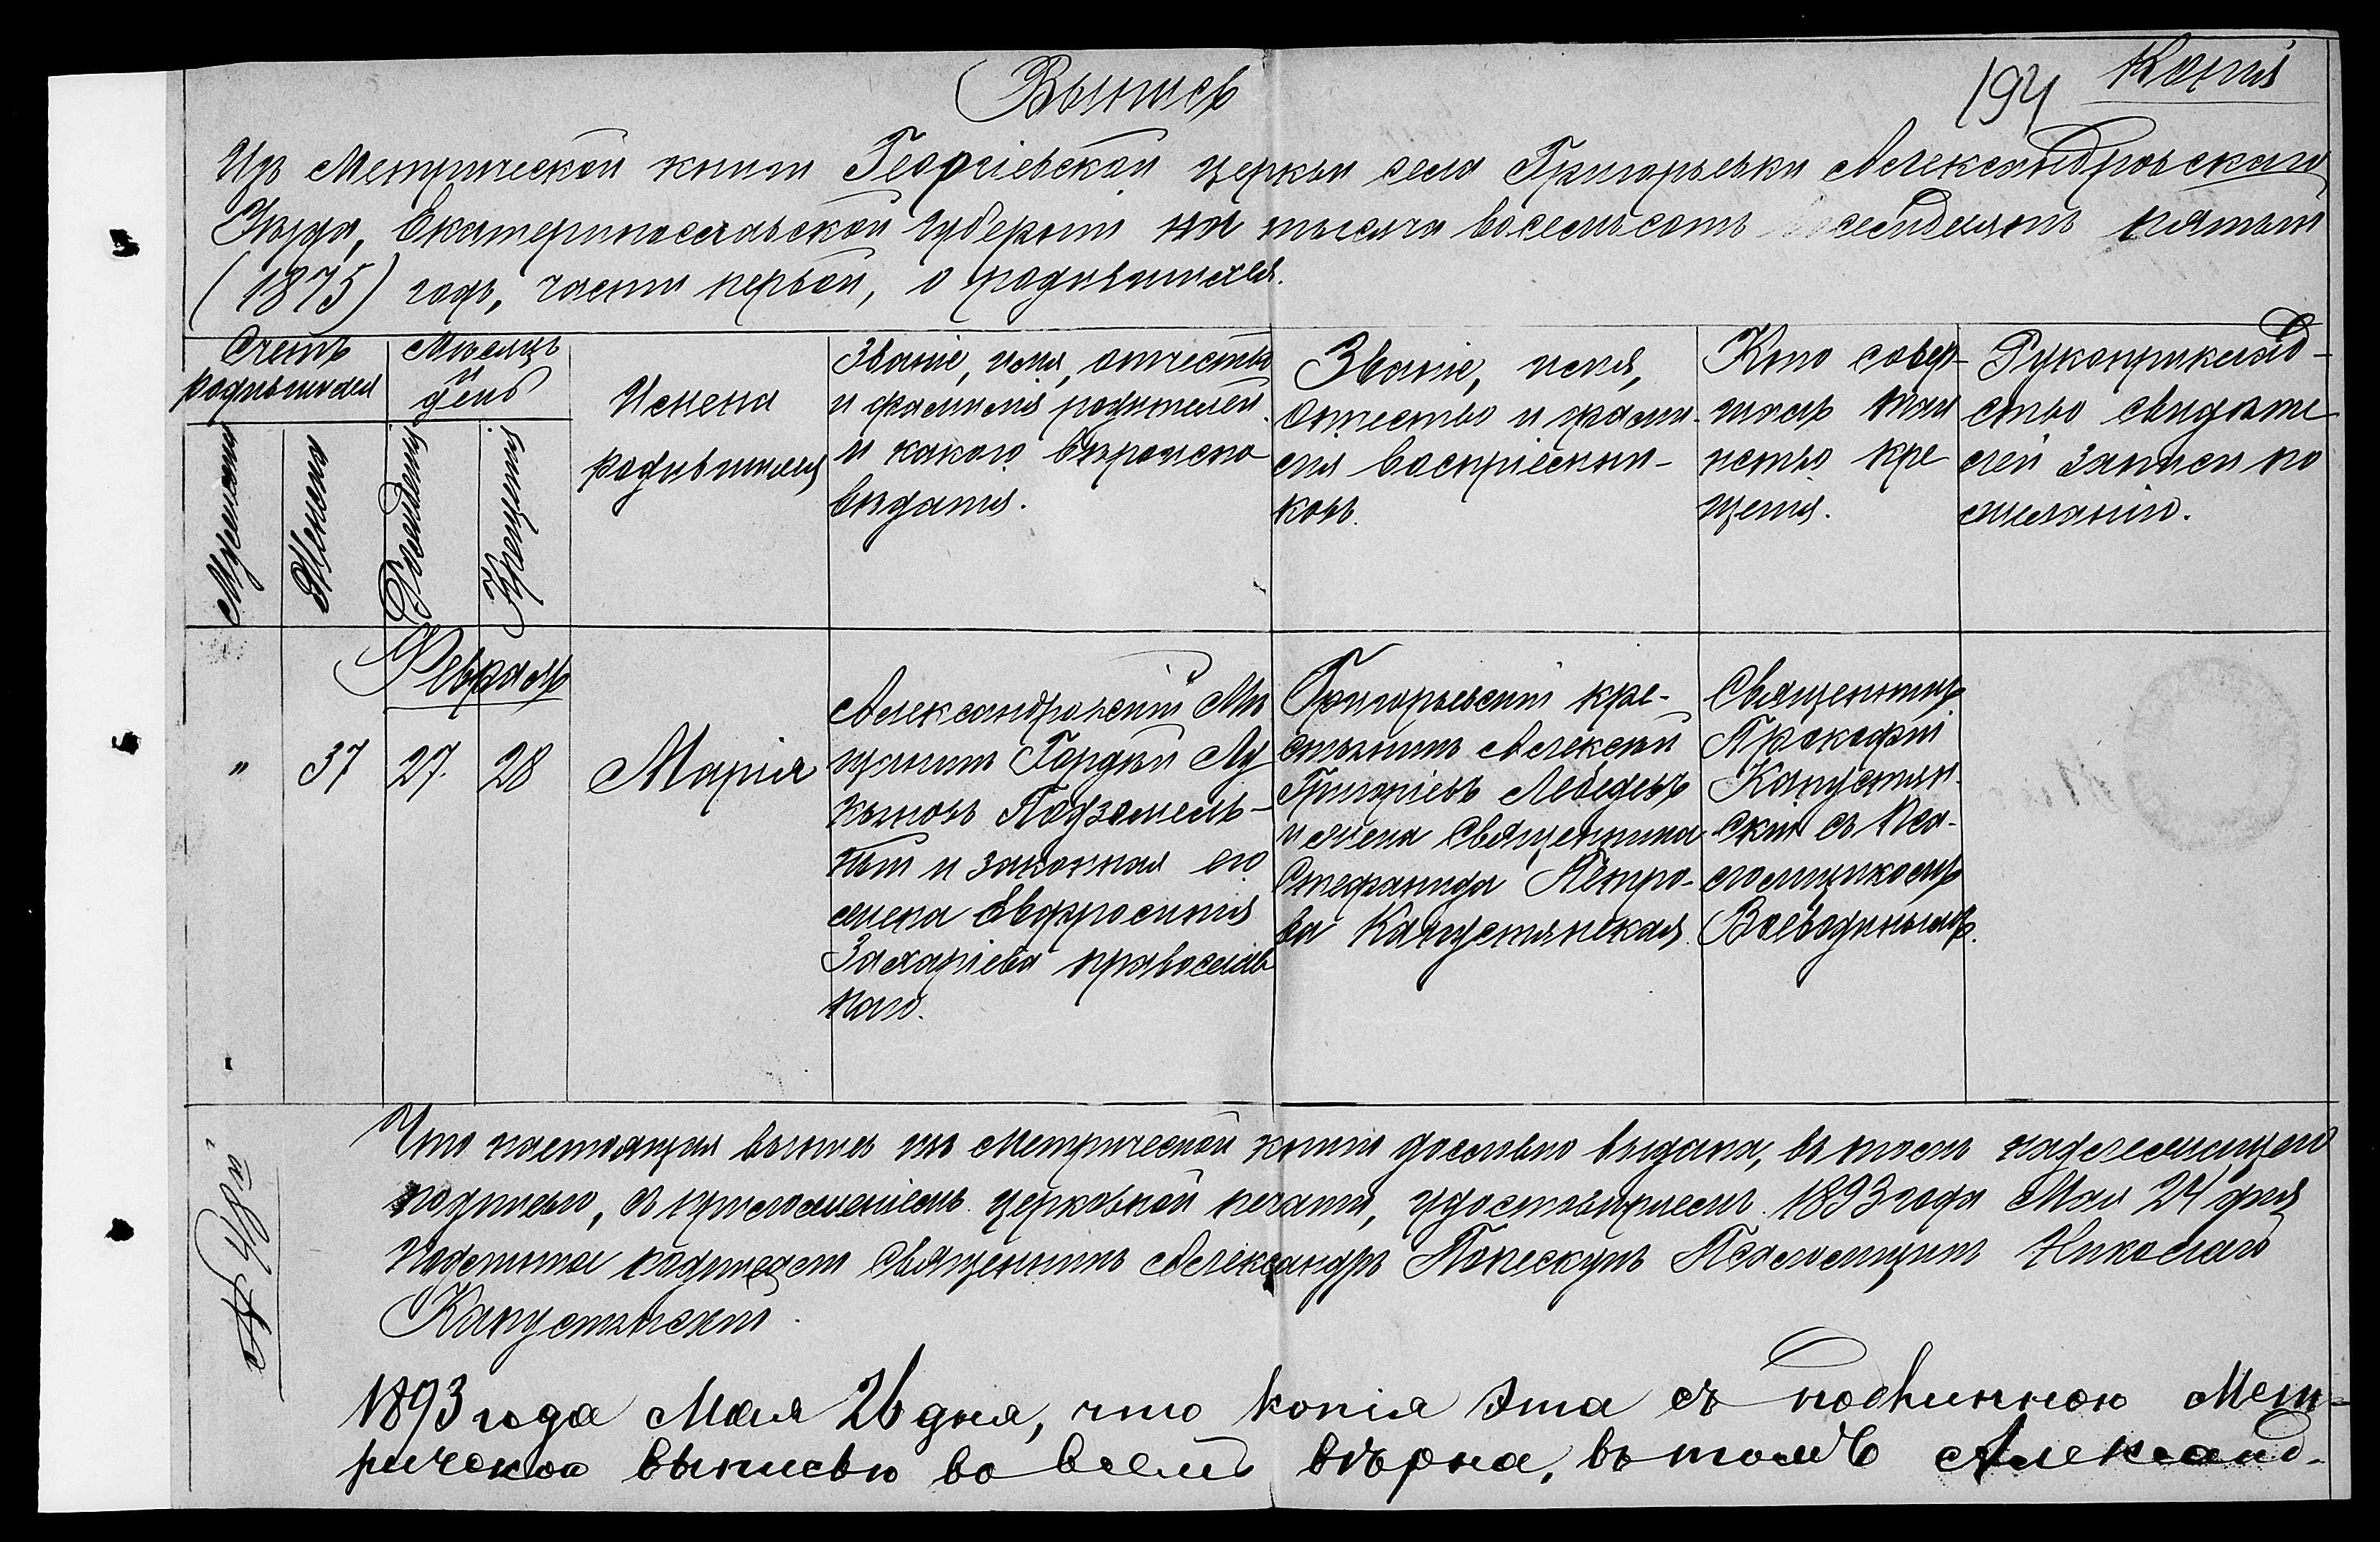 Копія
194
Выпись
Изъ Метрической книги Георгіевской церкви села Григорьевки Александровскаго
Уѣзда, Екатеринославской губерніи на тысяча восемьсотъ семьдесятъ пятый
(1875) годъ, части первой, о родившихся.
Счетъ
родившихся
Мужескаго
Женска
Мѣсяцъ
и
день
Рожденія
Крещенія
Имена
родившихся
Званіе, имя, отчество
и фамилія родителей
и какого вѣроиспо
вѣданія.
Званіе, имя,
отчество и фами-
лія воспріемни-
ковъ.
Кто совер-
шалъ таи
нство кре
щенія.
Рукоприклад-
ство свидѣте
лей записи по
желанію.
Февраль
" 37 27. 28 Марія
Александровскій Мѣ
щанинъ Гордѣй Лу
кьяновъ Подземель-
ный и законная его
жена Евфросинія
Захаріева православ
наго.
Григорьевскій кре-
стьянинъ Алексѣй
Григоріевъ Лебедевъ
и жена Священника
Стефанида Петро-
ва Капустянская.
Священникъ
Прокофій
Капустян-
скій съ Пса-
ломщикомъ
Воеводинымъ.
№ 48й
Что настоящая выпись изъ Метрической книги дословно выдана, въ томъ надлежащею
подписью, съ приложеніемъ церковной печати, удостовѣряемъ. 1893 года Мая 24 дня
Подлинный подписали Священникъ Александръ Понескулъ Псаломщикъ Николай
Капустянскій
1893 года Мая 26 дня, что копія эта съ подлинною Мет-
рическою выписью во всемъ вѣрна, въ томъ Александ-